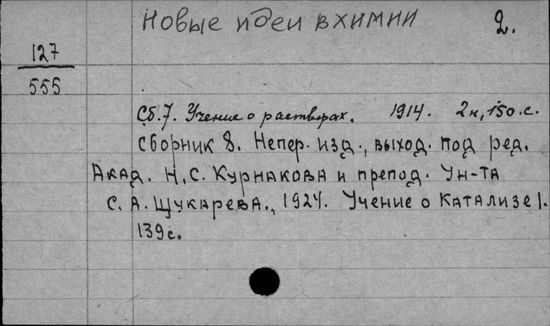 Новые идеи в химии 2.
127
555
Сб. 7. Учение о растворах. 1914. 2н, 150 с.
Сборник 8. Непер. изд., выход. под ред.
Акад. Н. С. Курнакова и препод. Ун-та
С. А. Щукарева., 1924. Учение о Катализе I.
139 с.